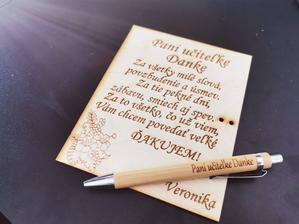 Pani učiteľke
Danke
Za všetky milé slová,
povzbudenie a úsmev.
Za tie pekné dni,
zábavu, smiech aj spev.
Za to všetko, čo už viem,
Vám chcem povedať veľké
ĎAKUJEM!
Pani učiteľke Danke
Veronika